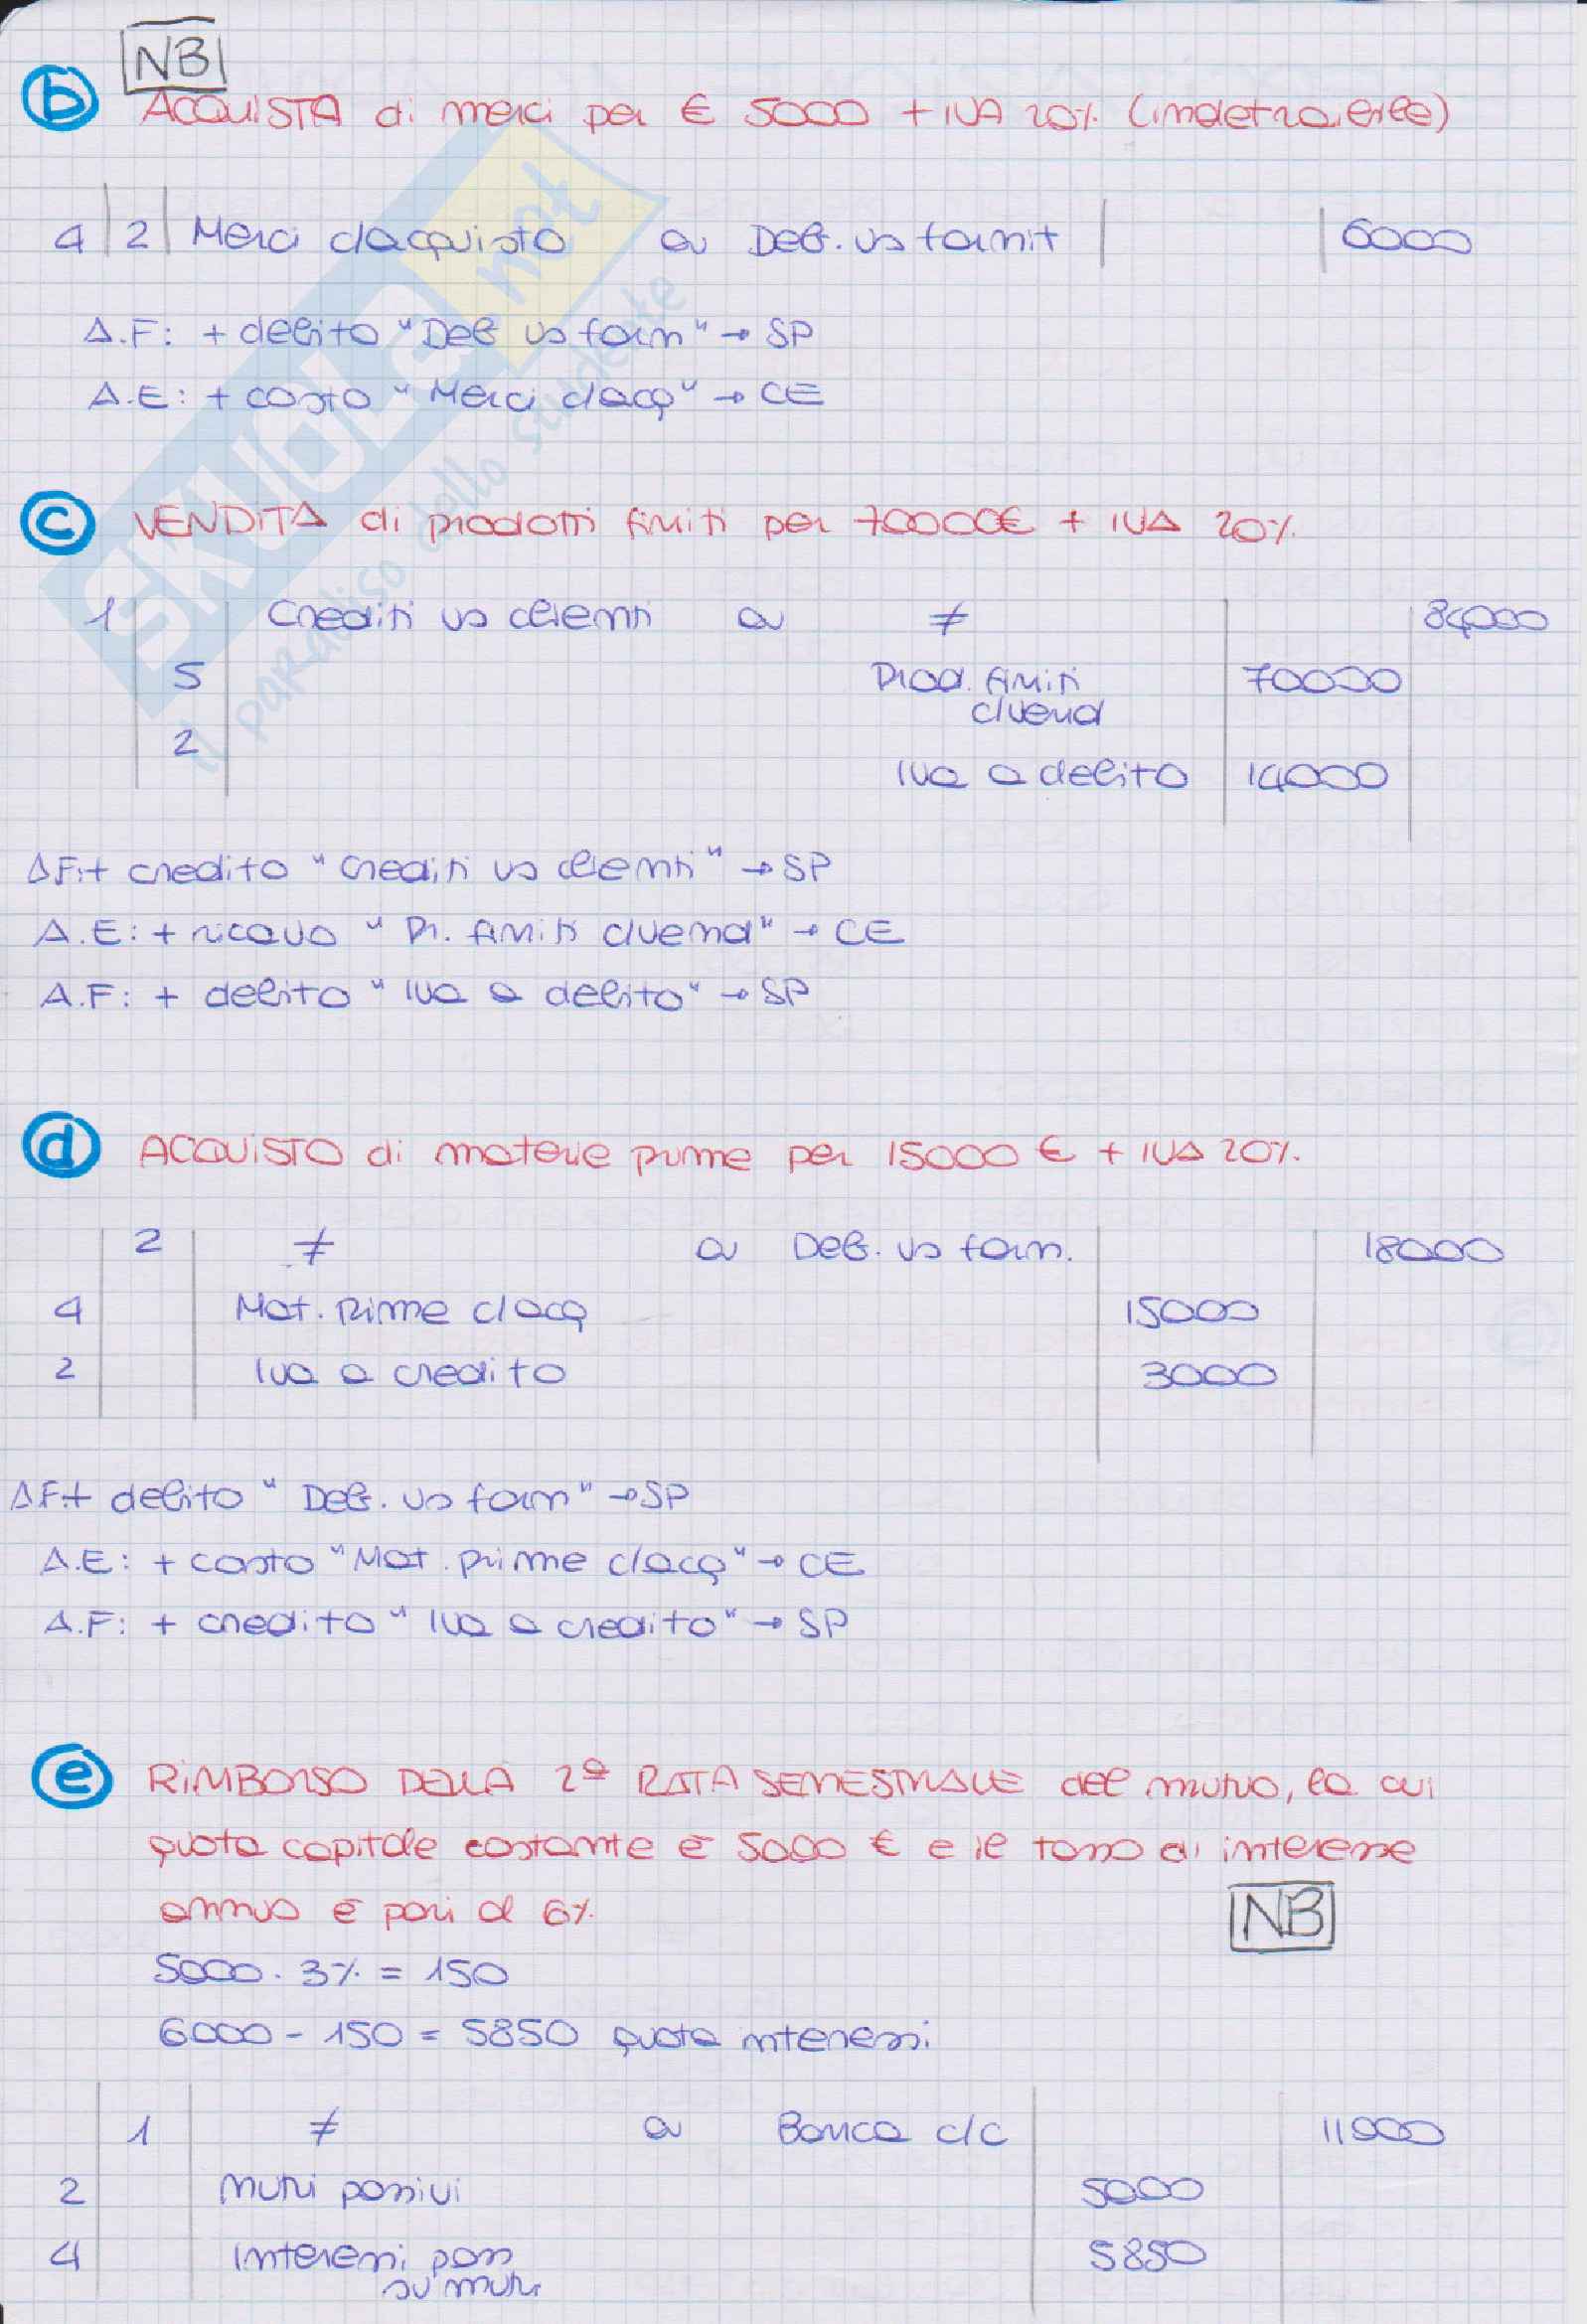 NB
b ACQUISTA di merci per € 5000 + IVA 20% (indetraibile)
4 | 2 | Merci c/acquisto a Deb. vs fornit | | 6000
Δ.F: + debito "Deb vs forn" → SP
Δ.E: + costo "Merci c/acq" → CE
c VENDITA di prodotti finiti per 70000€ + IVA 20%
1 Crediti vs clienti a ≠ 84000
5 Prod. finiti 70000
c/vend
2
Iva a debito 14000
ΔF:+ credito "Crediti vs clienti" → SP
Δ.E: + ricavo "Pr. finiti c/vend" → CE
Δ.F: + debito "Iva a debito" → SP
d ACQUISTO di materie prime per 15000 € + IVA 20%
2 ≠ a Deb. vs forn. 18000
4 Mat. Prime c/acq 15000
2 Iva a credito 3000
ΔF:+ debito "Deb. vs forn" → SP
Δ.E: + costo "Mat. prime c/acq" → CE
Δ.F: + credito "Iva a credito" → SP
e RIMBORSO DELLA 2ª RATA SEMESTRALE del mutuo, la cui
quota capitale costante è 5000 € e il tasso di interesse
annuo è pari al 6%
NB
5000 · 3% = 150
6000 - 150 = 5850 quota interessi
1 ≠ a Banca c/c 11000
2 Mutui passivi 5000
4 Interessi pass 5850
su mutui
SKUOLA.net
il paradiso dello studente